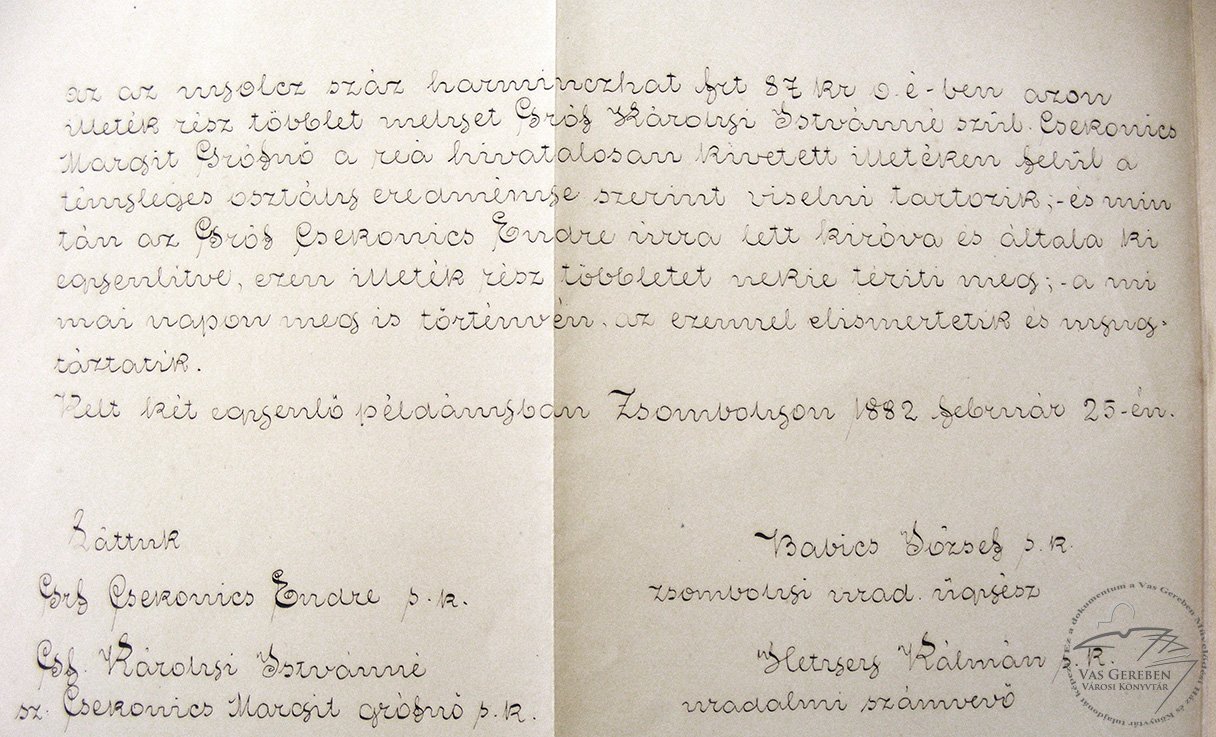 az az nyolcz száz harminczhat frt 87 kr o.é-ben azon
illeték rész többlet melyet Gróf Károlyi Istvánné szül. Csekonics
Margit Grófnő a reá hivatalosan kivetett illetéken felül a
tényleges osztály eredménye szerint viselni tartozik;-és min
tán az Gróf Csekonics Endre urra lett kiróva és általa ki
egyenlítve, ezen illeték rész többletet nekie téríti meg;-a mi
mai napon meg is történvén, az ezennel elismertetik és nyug-
táztatik.
Kelt két egyenlő példányban Zsombolyon 1882 február 25-én.
Láttuk
Grf Csekonics Endre s.k.
Gf. Károlyi Istvánné
sz. Csekonics Margit grófnő s.k.
Babics József s.k.
zsombolyi urad. ügyész
Hetyey Kálmán s.k.
uradalmi számvevő
Ez a dokumentum a Vas Gereben Művelődési Ház és Könyvtár tulajdonát képezi
VAS GEREBEN
VÁROSI KÖNYVTÁR